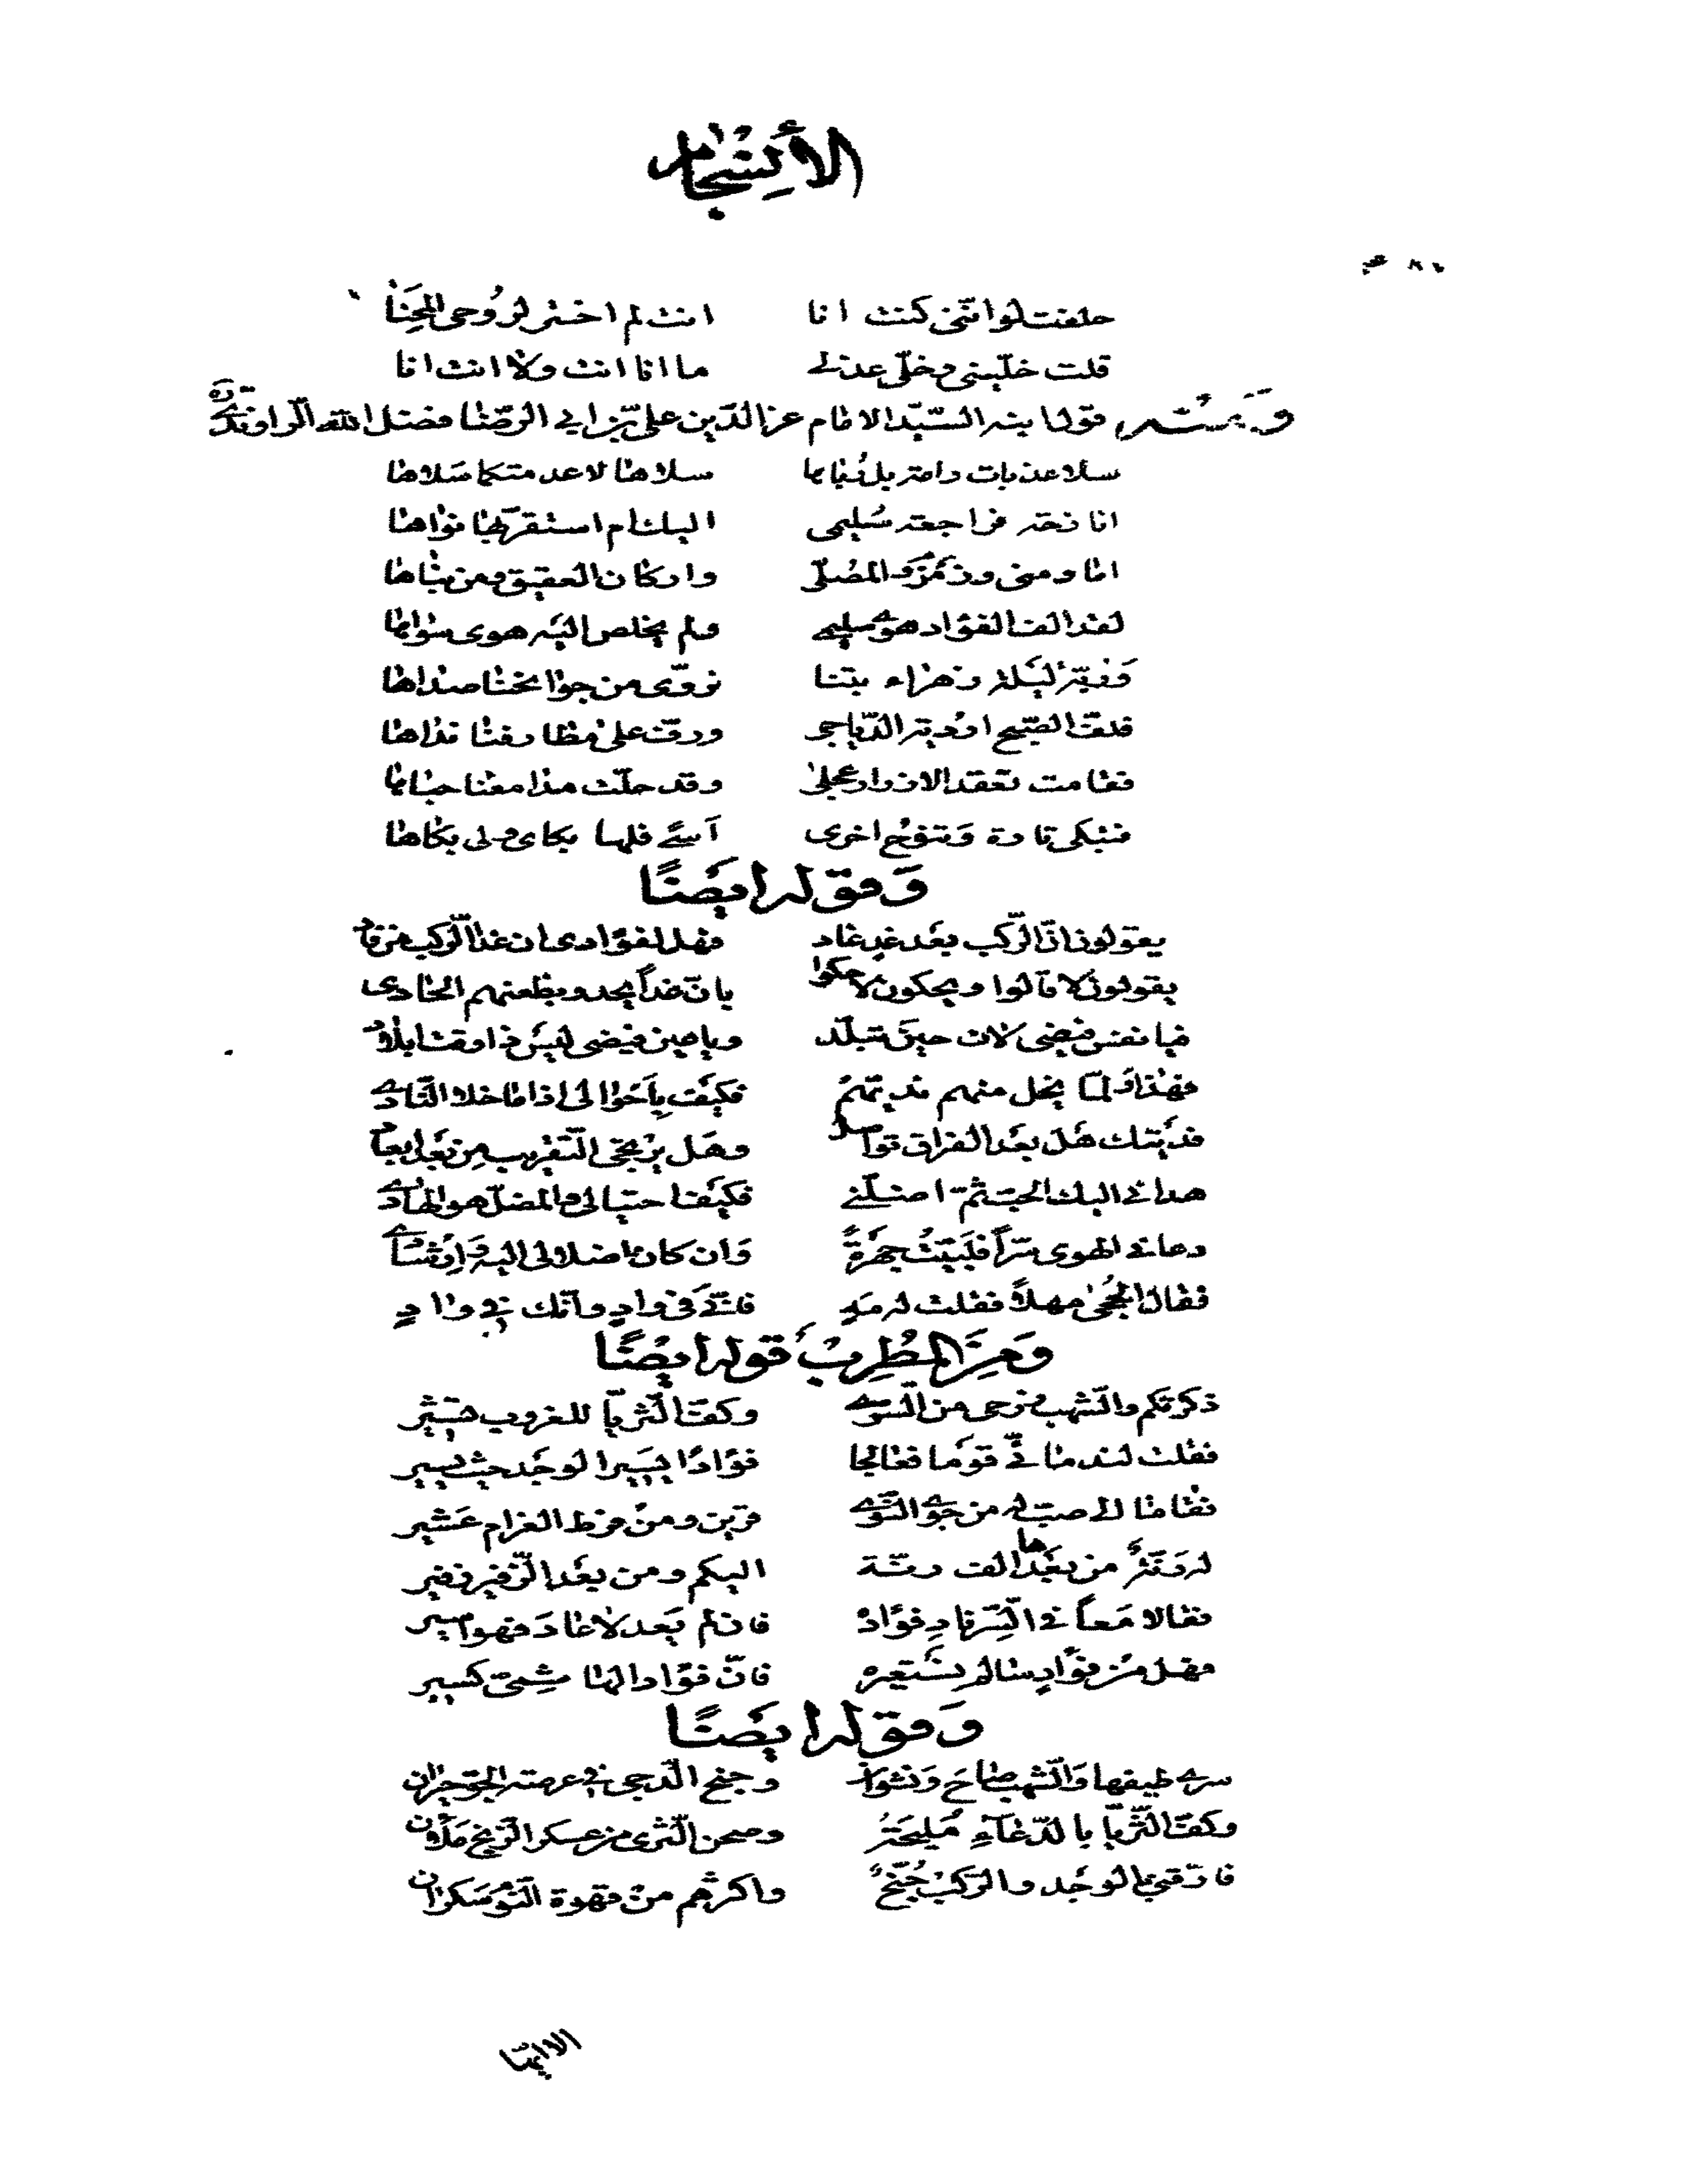 الأنسجام
حلفت لو انني كنت انا انت لم اختر لروحي المحنا
قلت خليني وخلي عذلي ما انا انت ولا انت انا
ومنه قول ابنه السيد الامام عز الدين علي بن ابي الرضا فضل الله الراوندي قده
سلا عذبات رامة بل رباها سلاها لا عدمتكما سلاها
انا خت مراجعة سليمى اليك ام استقر بها نواها
اما ومنى وزمزم والمصلى واركان العقيق ومن بناها
لقد الف الفؤاد هوى سليمى ولم يخلص اليه هوى سواها
وفية ليلة زهراء بتنا نروي من جوانحنا صداها
فلق الصبح اردية الدياجي ورق على مطارفنا نداها
فقامت تعقد الازرار عجلى وقد حلت مدامعنا حباها
فتبكي تارة وتنوح اخرى آسى فلها بكاى ولى بكاها
وقوله ايضا
يقولون ان الركب بعد غد غاد فهل لفؤادى ان غدا الركب من فاد
يقولون لا قالوا ويحكون لا حكوا بان غدا يحدو بظعنهم الحادى
فيا نفس فيضى لات حين تبلد ويا عين فيضى ليس ذا وقت ابلاد
فهذا ولما يخل منهم نديهم فكيف باحوالى اذا ما خلا النادى
فديتك هل بعد الفراق تواصل وهل يرتجى التقريب من بعد ابعاد
هدانى اليك الحب ثم اضلنى فكيف احتيالى والمضل هو الهادى
دعانى الهوى سرا فلبيت جهرة وان كان اضلالى اليه وارشادى
فقال الحجى مهلا فقلت له مه فانى فى واد وانك فى واد
ومن المطرب قوله ايضا
ذكرتكم والشهب مزحى من السرى وكف الثريا للغروب تشير
فقلت لندمانى قوما فعالجا فؤادا يسير الوجد حيث يسير
فقاما الى صب له من جوى النوى قرين ومن فرط الغرام عشير
له زفرة من بعدها الف رنة اليكم ومن بعد الزفير زفير
فقالا معا فى السر ناد فؤاده فان لم يعد لا عاد فهو اسير
فهل من فؤاد سالم يستعيره فان فؤاد الهاشمى كسير
وقوله ايضا
سرى طيفها والشهب صاح ونشوان وجنح الدجى فى عرصة الجو حيران
وكف الثريا بالدعاء مليحة وصحن الثرى من عسكر الزنج ملآن
فارقنى بالوجد والركب جنح واكثرهم من قهوة النوم سكران